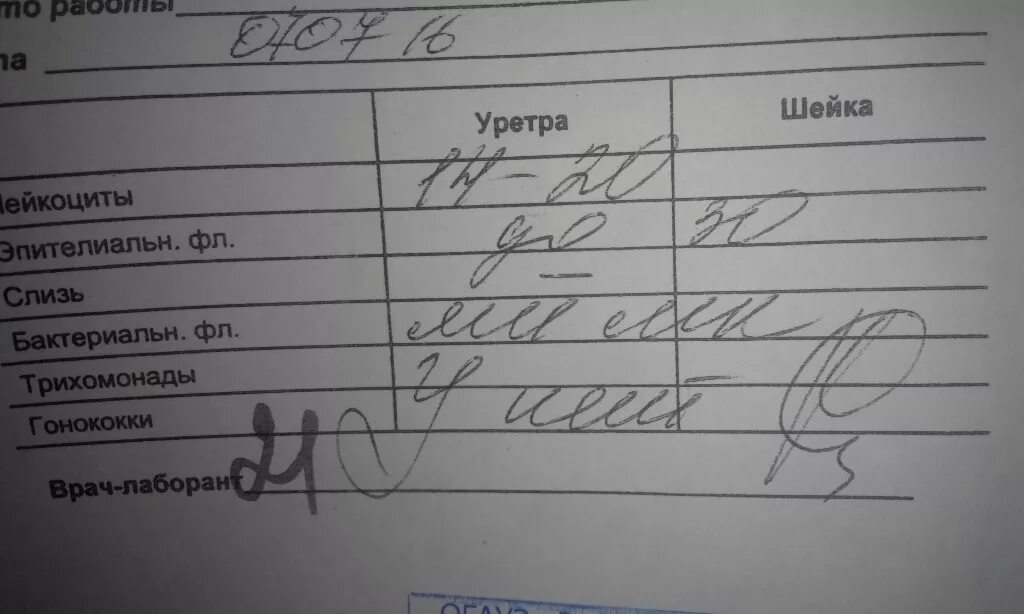 то работы
та 07 07 16
Уретра Шейка
Лейкоциты 14-20
Эпителиальн. фл. до 30
Слизь —
Бактериальн. фл.
Трихомонады
Гонококки нет
Врач-лаборант